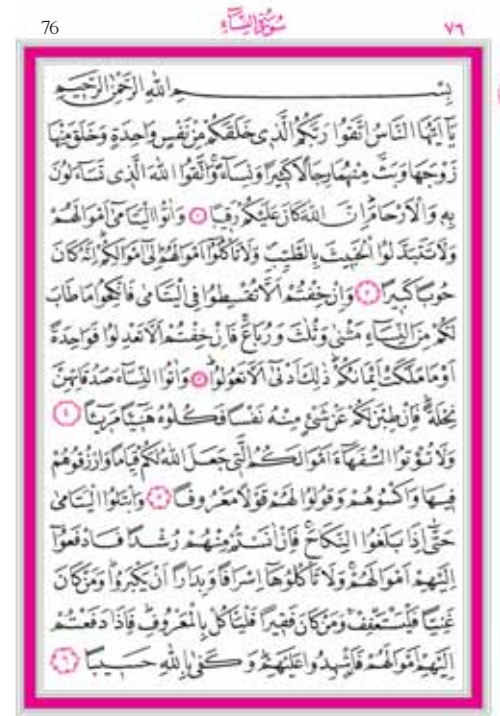 76 سُورَةُ النِّسَاءِ ٧٦
بِسْمِ اللهِ الرَّحْمٰنِ الرَّحِيمِ
يَآ اَيُّهَا النَّاسُ اتَّقُوا رَبَّكُمُ الَّذِى خَلَقَكُمْ مِنْ نَفْسٍ وَاحِدَةٍ وَخَلَقَ مِنْهَا
زَوْجَهَا وَبَثَّ مِنْهُمَا رِجَالًا كَثِيرًا وَنِسَآءً وَاتَّقُوا اللهَ الَّذِى تَسَآءَلُونَ
بِهِ وَالْاَرْحَامَ اِنَّ اللهَ كَانَ عَلَيْكُمْ رَقِيبًا ١ وَاٰتُوا الْيَتَامٰىٓ اَمْوَالَهُمْ
وَلَا تَتَبَدَّلُوا الْخَبِيثَ بِالطَّيِّبِ وَلَا تَأْكُلُوٓا اَمْوَالَهُمْ اِلٰٓى اَمْوَالِكُمْ اِنَّهُ كَانَ
حُوبًا كَبِيرًا ٢ وَاِنْ خِفْتُمْ اَلَّا تُقْسِطُوا فِى الْيَتَامٰى فَانْكِحُوا مَا طَابَ
لَكُمْ مِنَ النِّسَآءِ مَثْنٰى وَثُلٰثَ وَرُبَاعَ فَاِنْ خِفْتُمْ اَلَّا تَعْدِلُوا فَوَاحِدَةً
اَوْ مَا مَلَكَتْ اَيْمَانُكُمْ ذٰلِكَ اَدْنٰٓى اَلَّا تَعُولُوا ٣ وَاٰتُوا النِّسَآءَ صَدُقَاتِهِنَّ
نِحْلَةً فَاِنْ طِبْنَ لَكُمْ عَنْ شَىْءٍ مِنْهُ نَفْسًا فَكُلُوهُ هَنِيٓئًا مَرِيٓئًا ٤
وَلَا تُؤْتُوا السُّفَهَآءَ اَمْوَالَكُمُ الَّتِى جَعَلَ اللهُ لَكُمْ قِيَامًا وَارْزُقُوهُمْ
فِيهَا وَاكْسُوهُمْ وَقُولُوا لَهُمْ قَوْلًا مَعْرُوفًا ٥ وَابْتَلُوا الْيَتَامٰى
حَتّٰٓى اِذَا بَلَغُوا النِّكَاحَ فَاِنْ اٰنَسْتُمْ مِنْهُمْ رُشْدًا فَادْفَعُوٓا
اِلَيْهِمْ اَمْوَالَهُمْ وَلَا تَأْكُلُوهَٓا اِسْرَافًا وَبِدَارًا اَنْ يَكْبَرُوا وَمَنْ كَانَ
غَنِيًّا فَلْيَسْتَعْفِفْ وَمَنْ كَانَ فَقِيرًا فَلْيَأْكُلْ بِالْمَعْرُوفِ فَاِذَا دَفَعْتُمْ
اِلَيْهِمْ اَمْوَالَهُمْ فَاَشْهِدُوا عَلَيْهِمْ وَكَفٰى بِاللهِ حَسِيبًا ٦